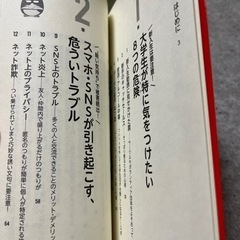 はじめに 3
大学生が特に気をつけたい
8つの危険
2
スマホ・SNSが引き起こす、
危ういトラブル
9 SNS上のトラブル - 多くの人と交流できることのメリット・デメリット
58
10 ネット炎上 - 友人・仲間内で盛り上がるだけのつもりが
11 ネット上のプライバシー - 匿名のつもりが簡単に個人が特定される
12 ネット詐欺 - つい乗せられてしまう巧妙な誘い文句に要注意!
64